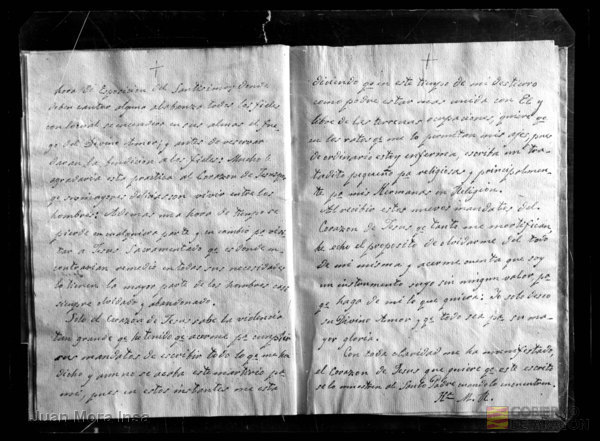 hora de Exposición del Santísimo, donde
deben cantar alguna alabanza todos los fieles
con lo cual se encendera en sus almas el fue
go del Divino Amor; y antes de reservar
daran la bendición a los fieles. Mucho le
agradaria esta practica al Corazon de Jesus pr
qe sus mayores delicias son vivir entre los
hombres: Ademas una hora de tiempo se
pierde en cualquiera parte, y en cambio pa visi
tar a Jesus Sacramentado qe es donde en
contrarian remedio en todas sus necesidades
lo tienen la mayor parte de los hombres casi
siempre olvidado y abandonado.
Solo el Corazon de Jesus sabe la violencia
tan grande qe he tenido qe acerme pa cumplir
sus mandatos de escribir todo lo qe me ha
dicho y aun no se acaba este martirio pa
mi, pues en estos instantes me esta
diciendo qe en este tiempo de mi destierro
como podre estar mas unida con El y
libre de las terrenas ocupaciones quiere qe
en los ratos qe me lo permitan mis ajes, pues
de ordinario estoy enferma, escriba un tra
tadito pequeño pa religiosas y principalmen
te pa mis Hermanas en Religión.
Al recibir estos nuevos mandatos del
Corazon de Jesus qe tanto me mortifican,
he echo el proposito de olvidarme del todo
de mi misma y acerme cuenta que soy
un instrumento suyo sin ningun valor pa
qe haga de mi lo que quiera: Yo solo deseo
su Divino Amor y qe todo sea pa su ma
yor gloria.
Con toda claridad me ha manifestado,
el Corazon de Jesus que quiere qe este escrito
se lo muestren al Santo Padre cuando lo
Ha. M. R.
Juan Mora Insa
GOBIERNO
DE ARAGON